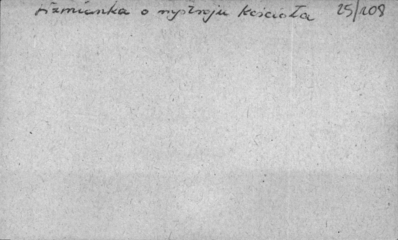 wzmianka o wystroju kościoła 25/108